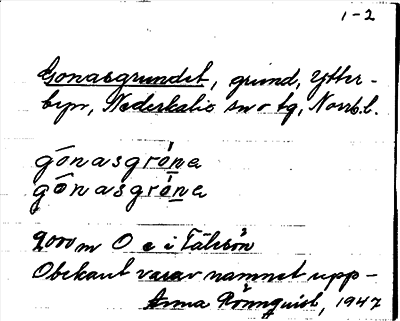 1-2
Gonasgrundet, grund, Ytter-
byn, Nederkalix sn o tg, Norrb.l.
gónasgrón̲a
gônasgrón̲a
9000 m O
Obekant varav namnet upp-
Anna Rönnquist, 1947